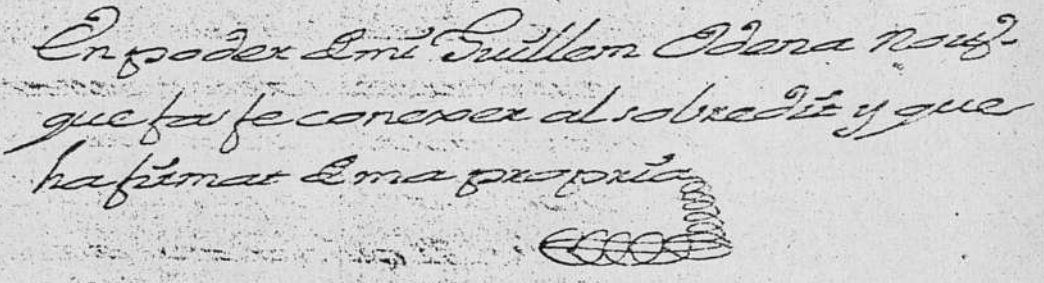 En poder de mi Guillem Odena Nott.
que fas fe conexer al sobredit y que
ha firmat de ma propria